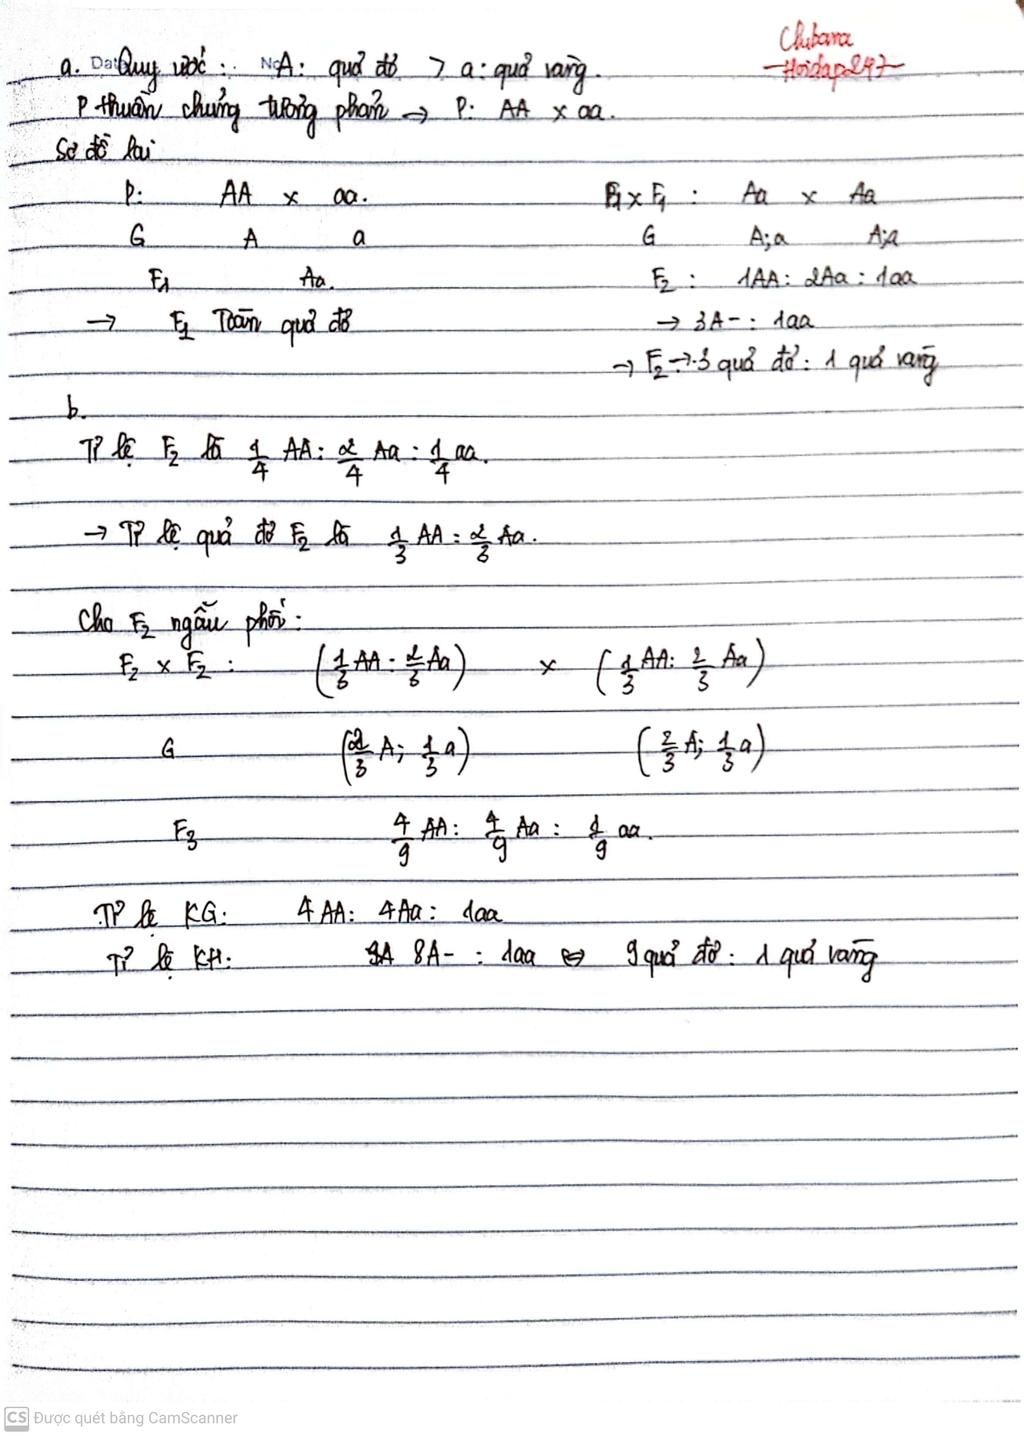 Chibana
Hoidap247
a. Date Quy ước: No A: quả đỏ > a: quả vàng.
P thuần chủng tương phản → P: AA x aa.
Sơ đồ lai
P: AA x aa.
G A a
F1 Aa.
→ F1 Toàn quả đỏ
F1 x F1 : Aa x Aa
G A;a A;a
F2 : 1AA: 2Aa : 1aa
→ 3A- : 1aa
→ F2 → 3 quả đỏ: 1 quả vàng
b.
Tỉ lệ F2 là 1/4 AA: 2/4 Aa : 1/4 aa.
→ Tỉ lệ quả đỏ F2 là 1/3 AA : 2/3 Aa.
Cho F2 ngẫu phối:
F2 x F2 : (1/3 AA : 2/3 Aa) x (1/3 AA: 2/3 Aa)
G (2/3 A; 1/3 a) (2/3 A; 1/3 a)
F3 4/9 AA: 4/9 Aa : 1/9 aa.
Tỉ lệ KG: 4AA: 4Aa: 1aa
Tỉ lệ KH: 8A- : 1aa ⇔ 9 quả đỏ: 1 quả vàng
CS Được quét bằng CamScanner